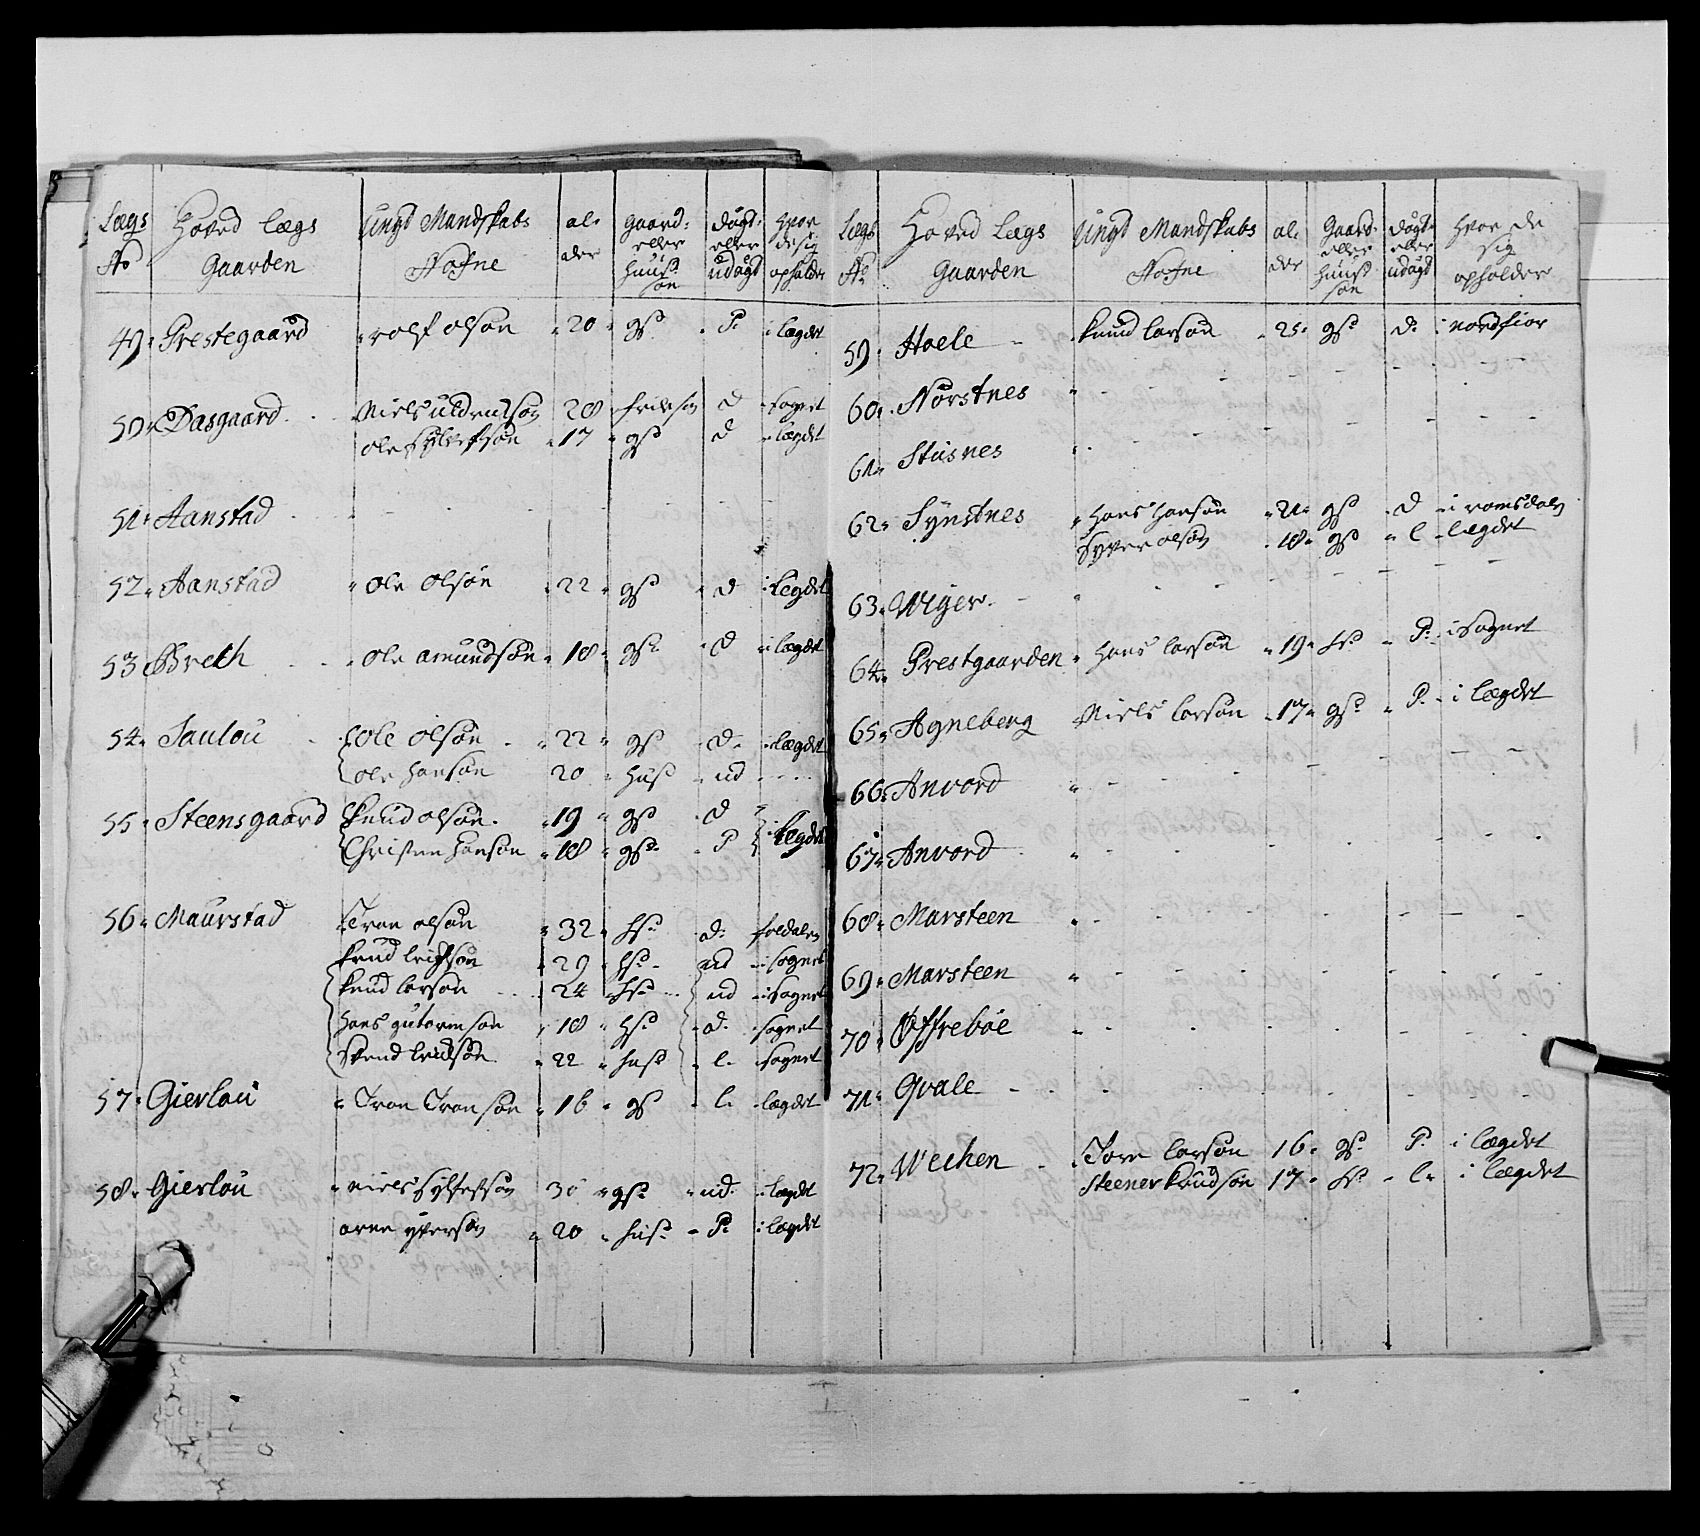 Lægs No | Hoved Lægs Gaarden | Ungd Mandskabs Nafne | al der | gaard: eller huus søn | dögd: eller udögd | hvor de sig opholder
49. Prestegaard | rolf olsøn | 20 | gs: | P: | i lægdet
50. Dasgaard | Niels | 28 | d | sognet
ole | 17 | gs: | d | lægdet
51. Aanstad
52. Aanstad | ole olsøn | 22 | gs: | d | i legdet
53. Breth | ole amundsøn | 18 | gs: | d | i lægdet
54. Taulou | ole olsøn | 22 | gs: | d: | i lægdet
ole hansøn | 20 | hus: | ud
55. Steensgaard | knud olsøn | 19 | gs: | d | i lægdet
Christen hansøn | 18 | gs: | P
56. Maurstad | Tron olsøn | 32 | hs: | d:
knud | 29 | hs: | ud | i sognet
knud larsøn | 24 | hs: | ud | i sognet
hans gutormsøn | 18 | hs: | d: | sognet
22 | hus: | l. | sognet
57. Gierlou | Tron Tronsøn | 16 | gs: | l. | lægdet
58. Gierlou | niels | gs: | ud: | i lægdet
arne | 20 | hus: | P: | i lægdet
Lægs No | Hoved Lægs Gaarden | Ungd Mandskabs Nafne | al: der | Gaard eller huus søn | dögd: eller udögd | hvor de sig opholder
59. Hoele | knud larsøn | 25 | gs: | d: | i nordfior
60. Nørstnes
61. Stusnes
62. Synstnes | hans hansøn | 21 | gs: | d | i romsdalen
Syver olsøn | 18 | gs: | l | lægdet
63. Wiger
64. Prestgaarden | hans larsøn | 19 | hs: | P: | i sognet
65. Agneberg | Niels larsøn | 17 | gs: | P: | i lægdet
66. Anvord
67. Anvord
68. Marsteen
69. Marsteen
70. Øffrebøe
71. Qvale
72. Wechen | Tore larsøn | 16 | gs: | P: | i lægdet
Steener knudsøn | 17 | hs: | l. | i lægdet